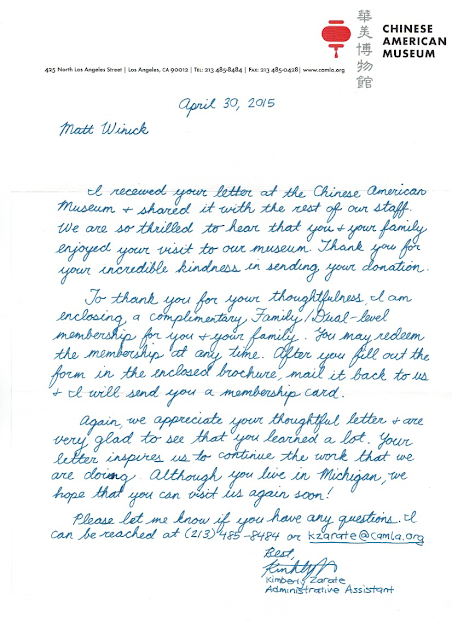 華美博物館
CHINESE
AMERICAN
MUSEUM
425 North Los Angeles Street | Los Angeles, CA 90012 | Tel: 213 485-8484 | Fax: 213 485-0428 | www.camla.org
April 30, 2015
Matt Winick
I received your letter at the Chinese American
Museum + shared it with the rest of our staff.
We are so thrilled to hear that you + your family
enjoyed your visit to our museum. Thank you for
your incredible kindness in sending your donation.
To thank you for your thoughtfulness, I am
enclosing a complimentary Family/Dual-level
membership for you + your family. You may redeem
the membership at any time. After you fill out the
form in the enclosed brochure, mail it back to us
+ I will send you a membership card.
Again, we appreciate your thoughtful letter + are
very glad to see that you learned a lot. Your
letter inspires us to continue the work that we
are doing. Although you live in Michigan, we
hope that you can visit us again soon!
Please let me know if you have any questions. I
can be reached at (213) 485-8484 or kzarate@camla.org
Best,
Kimberly Zarate
Administrative Assistant